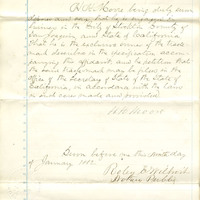 H. H. Moore being duly sworn
deposes and says that he is engaged in
business in the City of Stockton County of
San Joaquin, and State of California
that he is the exclusive owner of the trade
mark described in the specification accom-
panying this affidavit, and he petitions that
the said trademark may be filed in the
office of the Secretary of State of the State of
California, in accordance with the laws
in such case made and provided
H. H. Moore
Sworn before me this ninth day
of January 188
Notary Public